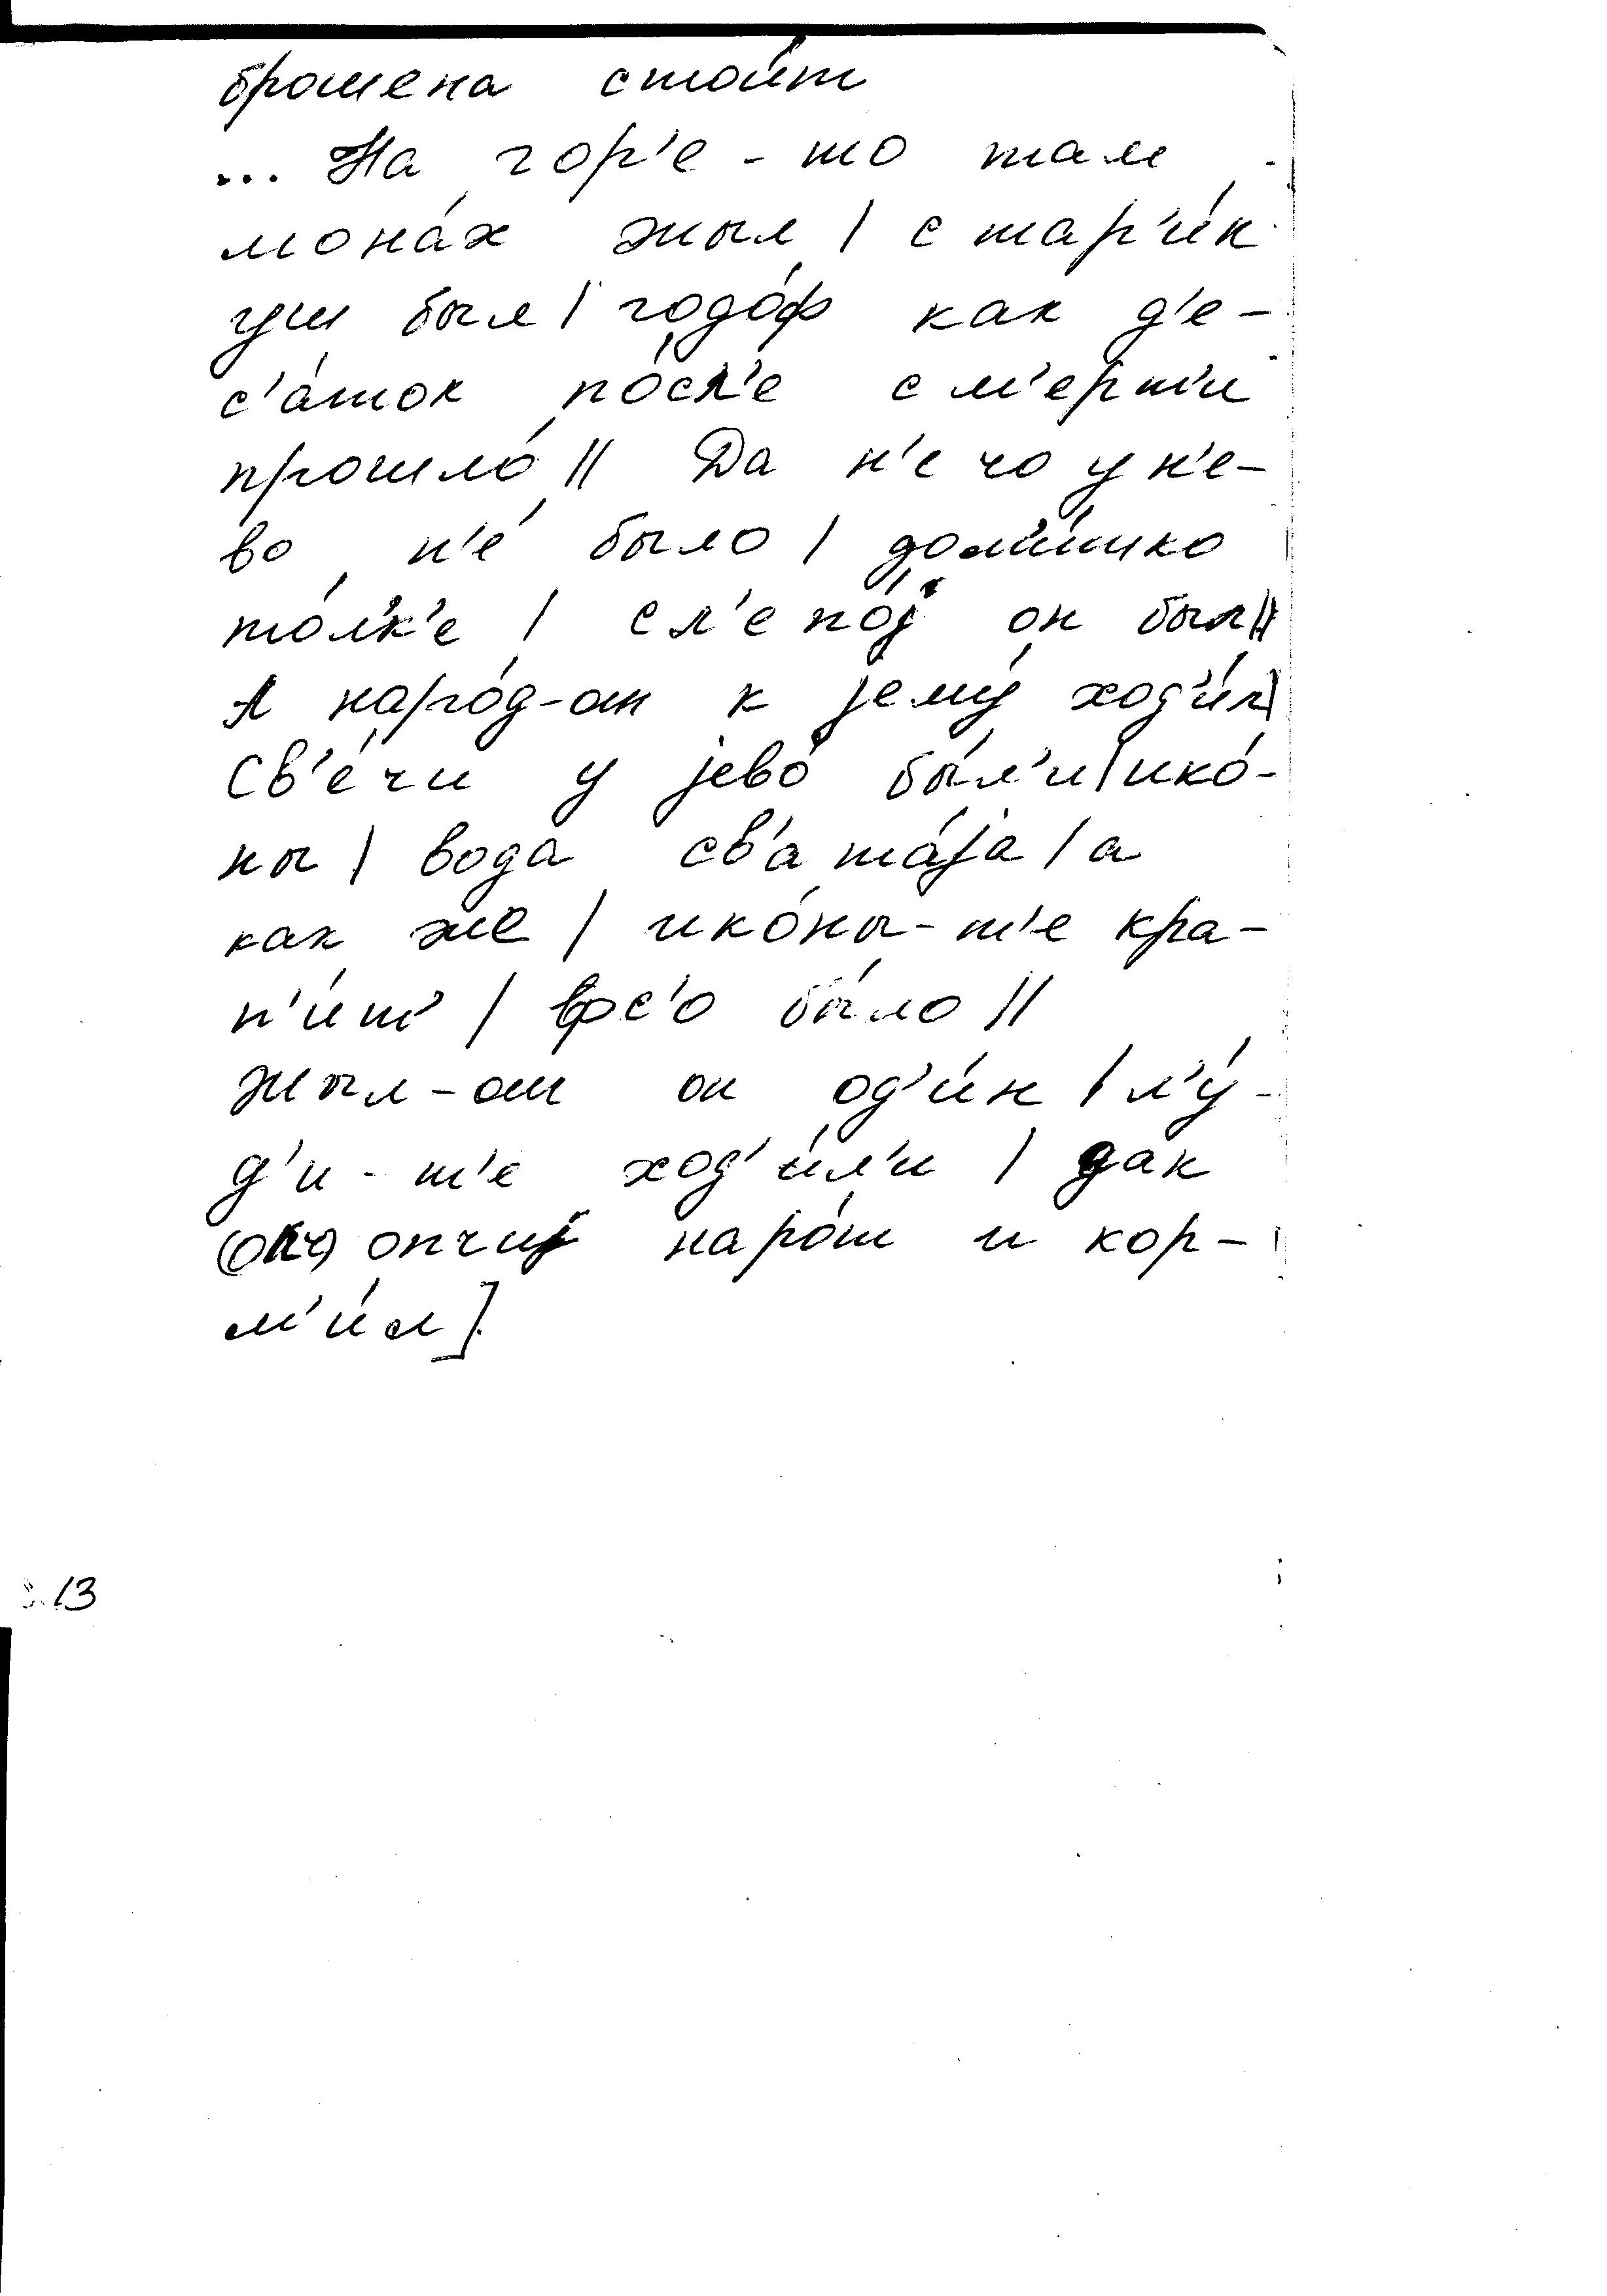 брошена стои́т
... На гор'е-то там
мона́х жыл | стар'и́к
уш был | годо́ф как д'е-
с'а́ток по́сл'е см'ерт'и
прошло́ || Да н'ечо у н'е-
во н'е́ было | доми́шко
то́л'к'е | сл'епо́j он был ||
А наро́д-от к jему́ ход'и́л |
Св'е́чи у jево́ бы́л'и | ико́-
ны | вода св'ата́jа | а
как же | ико́ны-т'е кра-
п'и́т' | фс'о бы́ло ||
жыл-от он од'и́н | л'у́-
д'и-т'е ход'и́л'и | дак
опчиj наро́т и кор-
м'и́л].
13